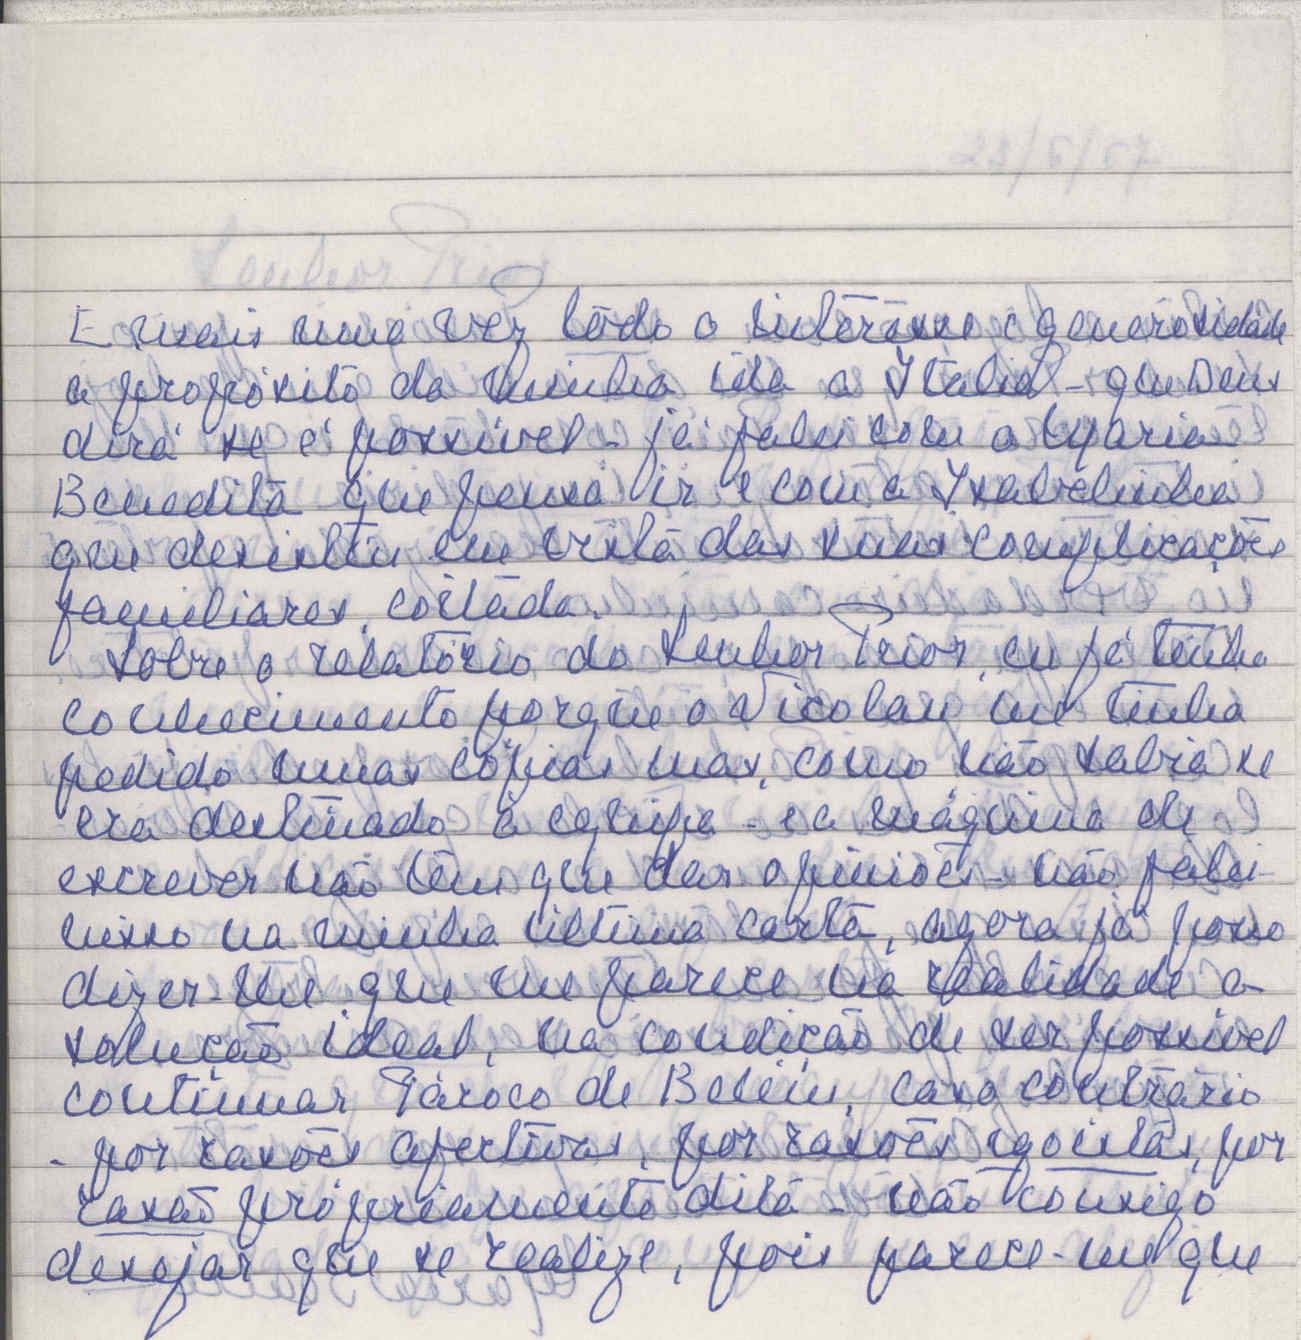 E mais uma vez todo o interesse e generosidade
a propósito da minha ida a Italia - que Deus
dirá se é possivel - já falei com a Maria
Benedita que pensa ir e com a Isabelinha
que desistiu em vista das suas complicações
familiares, coitada.
Sobre o relatório do Senhor Prior, eu já tinha
conhecimento porque o Nicolau me tinha
pedido umas cópias mas, como não sabia se
era destinado à equipa - e a máquina de
escrever não tem que dar opiniões - não falei
nisso na minha ultima carta, agora já posso
dizer-lhe que me parece na realidade a
solução ideal, na condição de ser possivel
continuar Pároco de Belém, caso contrário
- por rasões afectivas, por rasões egoistas, por
rasão própriamente dita - não consigo
desejar que se realize, pois parece-me que